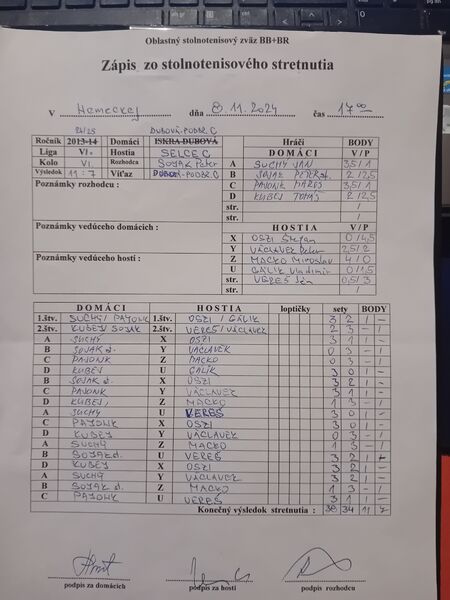 Oblastný stolnotenisový zväz BB+BR
Zápis zo stolnotenisového stretnutia
V Nemeckej dňa 8. 11. 2024 čas 17 00
24/25 DUBOVÁ-PODBR. C
Ročník 2013-14 Domáci ISKRA DUBOVÁ Hráči BODY
Liga VI. Hostia SELCE C DOMÁCI V/P
Kolo VI. Rozhodca SOJAK Peter A SUCHÝ JÁN 3,5/1
Výsledok 11 : 7 Víťaz DUBOVÁ-PODBR. C B SOJAK PETER st. 2/2,5
Poznámky rozhodcu : C PAJONK 3,5/1
D KUBEJ TOMÁŠ 2/2,5
str. /
str. /
Poznámky vedúceho domácich : HOSTIA V/P
X OSZI Štefan 0/4,5
Y VÁCLAVEK 2,5/2
Poznámky vedúceho hostí : Z MACKO Miroslav 4/0
U GÁLIK Vladimír 0/1,5
str. VEREŠ Ján 0,5/3
str. /
DOMÁCI HOSTIA loptičky sety BODY
1.štv. SUCHÝ / PAJONK 1.štv. OSZI / GÁLIK 3 2 1 -
2.štv. KUBEJ / SOJAK 2.štv. VEREŠ / VÁCLAVEK 2 3 - 1
A SUCHÝ X OSZI 3 1 1 -
B SOJAK st. Y VÁCLAVEK 0 3 - 1
C PAJONK Z MACKO 0 3 - 1
D KUBEJ U GÁLIK 3 0 1 -
B SOJAK st. X OSZI 3 2 1 -
C PAJONK Y VÁCLAVEK 3 2 1 -
D KUBEJ Z MACKO 1 3 - 1
A SUCHÝ U VEREŠ 3 0 1 -
C PAJONK X OSZI 3 0 1 -
D KUBEJ Y VÁCLAVEK 0 3 - 1
A SUCHÝ Z MACKO 1 3 - 1
B SOJAK st. U VEREŠ 3 2 1 -
D KUBEJ X OSZI 3 2 1 -
A SUCHÝ Y VÁCLAVEK 3 2 1 -
B SOJAK st. Z MACKO 1 3 - 1
C PAJONK U VEREŠ 3 1 1 -
Konečný výsledok stretnutia : 38 34 11 7
podpis za domácich podpis za hostí podpis rozhodcu